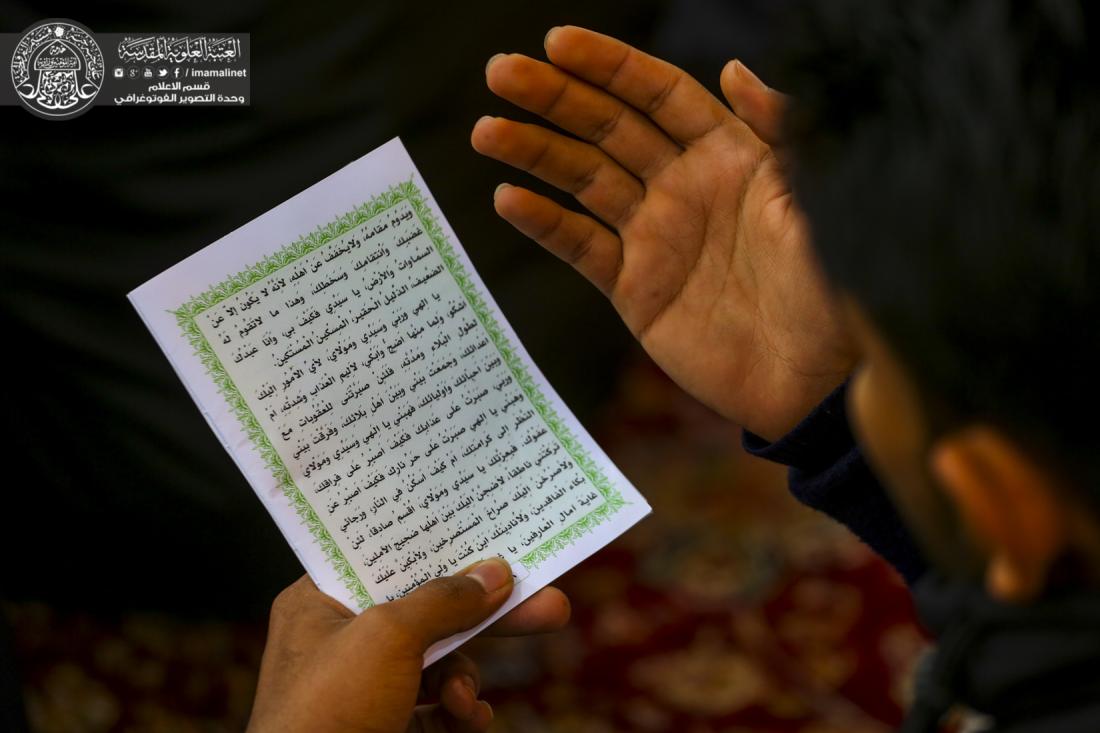 العتبة العلوية المقدسة
/ imamalinet
قسم الاعلام
وحدة التصوير الفوتوغرافي
وَيَدُومُ مَقامُهُ، وَلايُخَفَّفُ عَن اَهلِهِ، لاَنَّهُ لا يَكُونُ اِلاّ عَن
غَضَبِكَ وَانتِقامِكَ وَسَخَطِكَ، وَهذا ما لاتَقُومُ لَهُ
السَّماواتُ وَالاَرضُ، يا سَيِّدِي فَكَيفَ بِي، وَاَنا عَبدُكَ
الضَعيفُ، الذَّليلُ الحَقيرُ، المِسكينُ المُستَكينُ.
يا اِلهِي وَرَبّي وَسَيِّدِي وَمَولايَ، لاَيِّ الاُمُورِ اِلَيكَ
اَشكُو، وَلِما مِنها اَضِجُّ وَاَبكِي، لاَليمِ العَذابِ وَشِدَّتِهِ، اَم
لِطُولِ البَلاءِ وَمُدَّتِهِ، فَلَئِن صَيَّرتَنى لِلعُقُوباتِ مَعَ
اَعدائِكَ، وَجَمَعتَ بَيني وَبَينَ اَهلِ بَلائِكَ، وَفَرَّقتَ بَيني
وَبَينَ اَحِبّائِكَ وَاَوليائِكَ، فَهَبني يا اِلهي وَسَيِّدِي وَمَولايَ
وَرَبّي، صَبَرتُ عَلى عَذابِكَ فَكَيفَ اَصبِرُ عَلى فِراقِكَ،
وَهَبني يا اِلهي صَبَرتُ عَلى حَرِّ نارِكَ فَكَيفَ اَصبِرُ عَنِ
النَّظَرِ اِلى كَرامَتِكَ، اَم كَيفَ اَسكُنُ فِي النّارِ، وَرَجائي
عَفوُكَ، فَبِعِزَّتِكَ يا سَيِّدِي وَمَولايَ، اُقسِمُ صادِقاً، لَئِن
تَرَكتَنى ناطِقاً، لاَضِجَّنَّ اِلَيكَ بَينَ اَهلِها ضَجيجَ الاَمِلينَ،
وَلاَصرُخَنَّ اِلَيكَ صُراخَ المُستَصرِخينَ، وَلاَبكِيَنَّ عَلَيكَ
بُكاءَ الفاقِدينَ، وَلاُنادِيَنَّكَ اَينَ كُنتَ يا وَلِيَّ المُؤمِنينَ، يا
غايَةَ امالِ العارِفينَ، يا